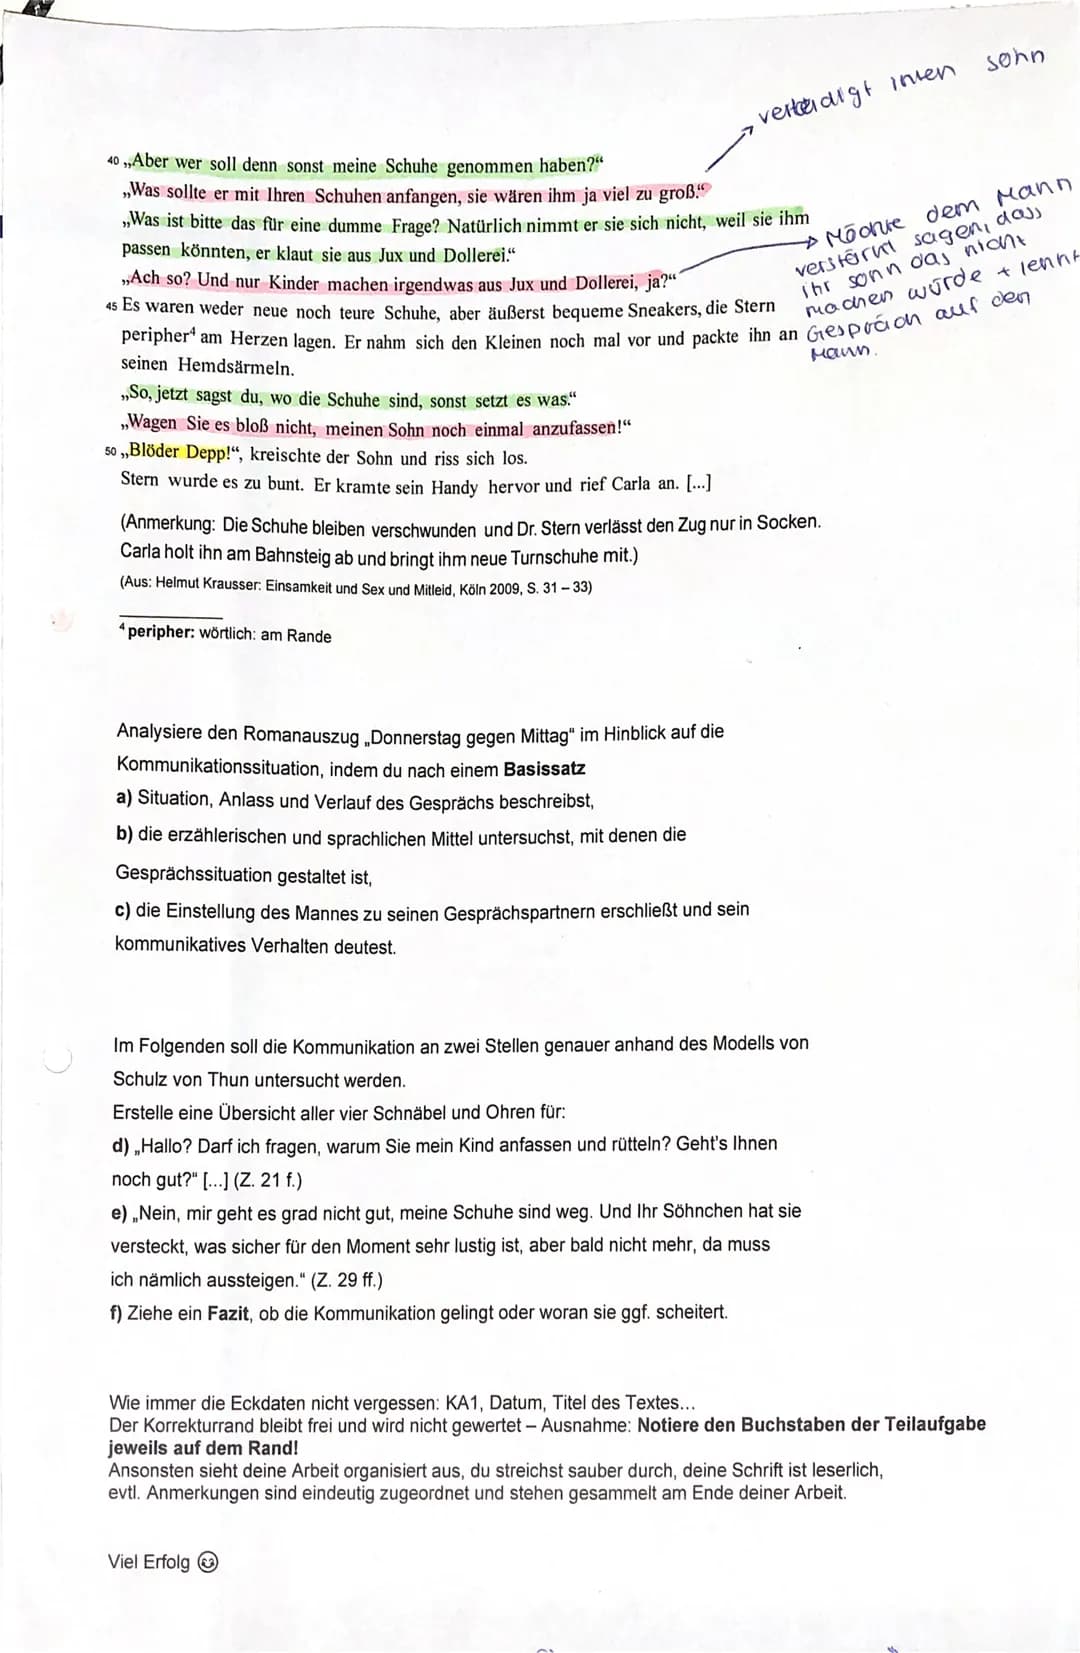 verteidigt ihren sohn
40 „Aber wer soll denn sonst meine Schuhe genommen haben?“
„Was sollte er mit Ihren Schuhen anfangen, sie wären ihm ja viel zu groß.“
„Was ist bitte das für eine dumme Frage? Natürlich nimmt er sie sich nicht, weil sie ihm
passen könnten, er klaut sie aus Jux und Dollerei.“
„Ach so? Und nur Kinder machen irgendwas aus Jux und Dollerei, ja?“
Möchte dem Mann
verstärkt sagen, dass
ihr sohn das nicht
machen würde + lenkt
Gespräch auf den
Mann.
45 Es waren weder neue noch teure Schuhe, aber äußerst bequeme Sneakers, die Stern
peripher⁴ am Herzen lagen. Er nahm sich den Kleinen noch mal vor und packte ihn an
seinen Hemdsärmeln.
„So, jetzt sagst du, wo die Schuhe sind, sonst setzt es was.“
„Wagen Sie es bloß nicht, meinen Sohn noch einmal anzufassen!“
50 „Blöder Depp!“, kreischte der Sohn und riss sich los.
Stern wurde es zu bunt. Er kramte sein Handy hervor und rief Carla an. [...]
(Anmerkung: Die Schuhe bleiben verschwunden und Dr. Stern verlässt den Zug nur in Socken.
Carla holt ihn am Bahnsteig ab und bringt ihm neue Turnschuhe mit.)
(Aus: Helmut Krausser: Einsamkeit und Sex und Mitleid, Köln 2009, S. 31 – 33)
⁴ peripher: wörtlich: am Rande
Analysiere den Romanauszug „Donnerstag gegen Mittag“ im Hinblick auf die
Kommunikationssituation, indem du nach einem Basissatz
a) Situation, Anlass und Verlauf des Gesprächs beschreibst,
b) die erzählerischen und sprachlichen Mittel untersuchst, mit denen die
Gesprächssituation gestaltet ist,
c) die Einstellung des Mannes zu seinen Gesprächspartnern erschließt und sein
kommunikatives Verhalten deutest.
Im Folgenden soll die Kommunikation an zwei Stellen genauer anhand des Modells von
Schulz von Thun untersucht werden.
Erstelle eine Übersicht aller vier Schnäbel und Ohren für:
d) „Hallo? Darf ich fragen, warum Sie mein Kind anfassen und rütteln? Geht's Ihnen
noch gut?“ [...] (Z. 21 f.)
e) „Nein, mir geht es grad nicht gut, meine Schuhe sind weg. Und Ihr Söhnchen hat sie
versteckt, was sicher für den Moment sehr lustig ist, aber bald nicht mehr, da muss
ich nämlich aussteigen.“ (Z. 29 ff.)
f) Ziehe ein Fazit, ob die Kommunikation gelingt oder woran sie ggf. scheitert.
Wie immer die Eckdaten nicht vergessen: KA1, Datum, Titel des Textes...
Der Korrekturrand bleibt frei und wird nicht gewertet – Ausnahme: Notiere den Buchstaben der Teilaufgabe
jeweils auf dem Rand!
Ansonsten sieht deine Arbeit organisiert aus, du streichst sauber durch, deine Schrift ist leserlich,
evtl. Anmerkungen sind eindeutig zugeordnet und stehen gesammelt am Ende deiner Arbeit.
Viel Erfolg 😊